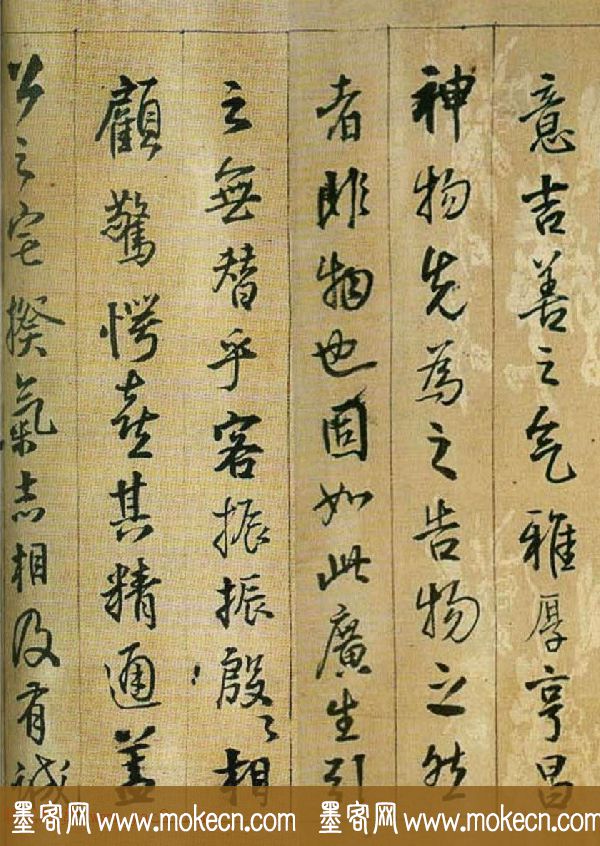 意吉善之气雅厚亨昌
神物先為之告物之然
者非物也固如此廣生引
之無替乎客振振殷〻相
顧驚愕叹其精通盖
公之宅揆氣志相及有誠
墨客网 www.mokecn.com 墨客网 www.mokecn.com